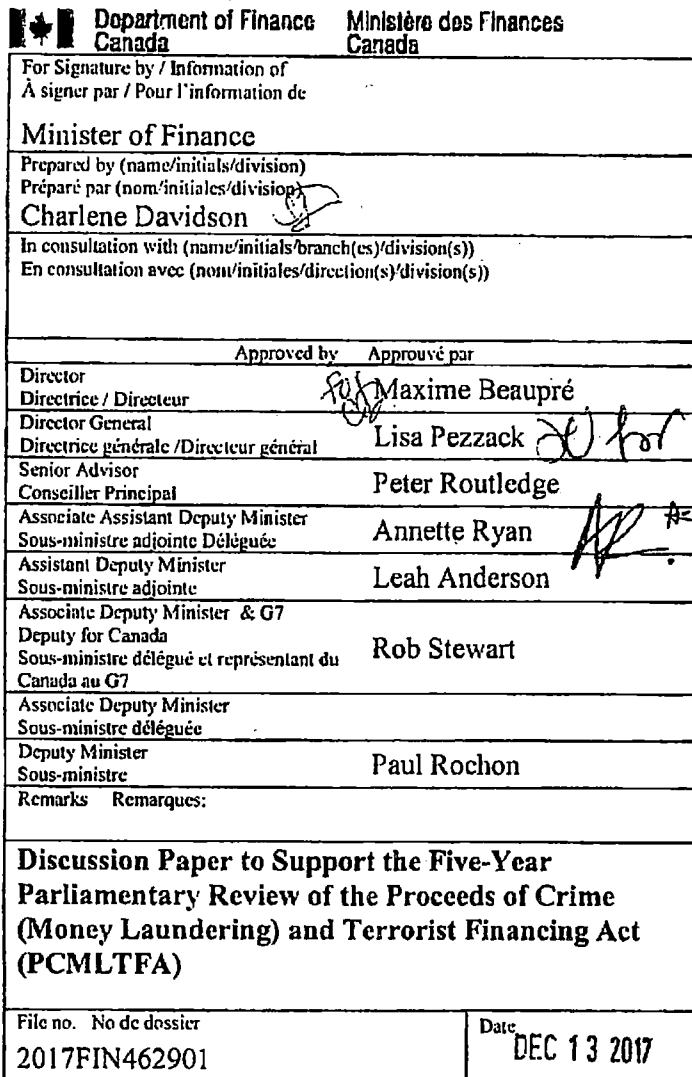 Department of Finance Ministère des Finances
Canada Canada
For Signature by / Information of
À signer par / Pour l'information de
Minister of Finance
Prepared by (name/initials/division)
Préparé par (nom/initiales/division)
Charlene Davidson
In consultation with (name/initials/branch(es)/division(s))
En consultation avec (nom/initiales/direction(s)/division(s))
Approved by Approuvé par
Director
Directrice / Directeur
for Maxime Beaupré
Director General
Directrice générale /Directeur général
Lisa Pezzack
Senior Advisor
Conseiller Principal
Peter Routledge
Associate Assistant Deputy Minister
Sous-ministre adjointe Déléguée
Annette Ryan
Assistant Deputy Minister
Sous-ministre adjointe
Leah Anderson
Associate Deputy Minister & G7
Deputy for Canada
Sous-ministre délégué et représentant du
Canada au G7
Rob Stewart
Associate Deputy Minister
Sous-ministre déléguée
Deputy Minister
Sous-ministre
Paul Rochon
Remarks Remarques:
Discussion Paper to Support the Five-Year
Parliamentary Review of the Proceeds of Crime
(Money Laundering) and Terrorist Financing Act
(PCMLTFA)
File no. No de dossier
2017FIN462901
Date
DEC 13 2017